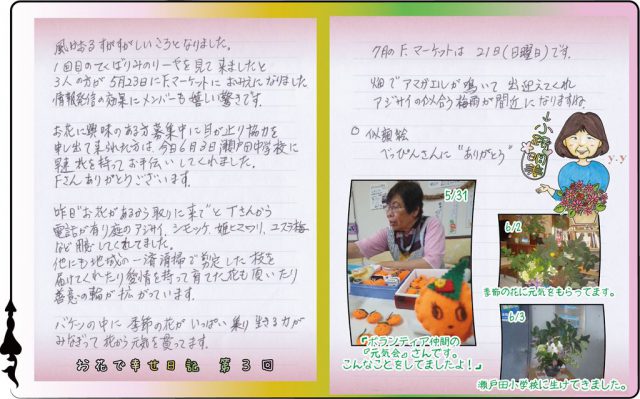 風かおるすがすがしいころとなりました。
1回目のてくばりみのりーやを見て来ましたと
3人の方が5月23日にF.マーケットにおみえになりました。
情報発信の効果にメンバーも嬉しい驚きです。
お花に興味のある方募集中に目が止り協力を
申し出て来れた方は今日6月3日瀬戸田中学校に
早速花を持ってお手伝いしてくれました。
Fさんありがとうございます。
昨日"お花があるから取りに来て"とTさんから
電話が有り庭のアジサイ、シモツケ、姫ヒマワリ、ユスラ梅
など用意してくれてました。
他にも地域の一斉清掃で剪定した枝を
届けてくれたり愛情を持って育てた花も頂いたり
善意の輪が拡がっています。
バケツの中に季節の花がいっぱい集り生きる力が
みなぎって花から元気を貰ってます。
お花で幸せ日記 第3回
7月のF.マーケットは21日(日曜日)です。
畑でアマガエルが鳴いて出迎えてくれ
アジサイの似合う梅雨が間近になりますね。
○ 似顔絵
べっぴんさんに"ありがとう"
y.y
5/31
『ボランティア仲間の
『元気会』さんです。
こんなことをしてましたよ!』
6/2
季節の花に元気をもらってます。
6/3
瀬戸田小学校に生けてきました。